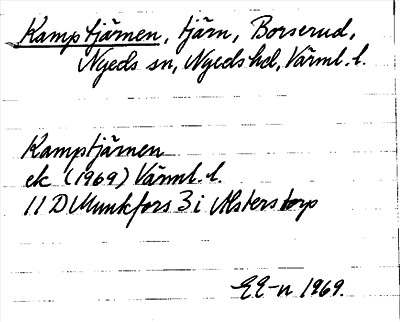 Kamptjärnen, tjärn, Borserud,
Nyeds sn, Nyeds hd, Värml. l.
Kamptjärnen
ek (1969) Värml. l.
11 D Munkfors 3 i Alsterstorp
1969.